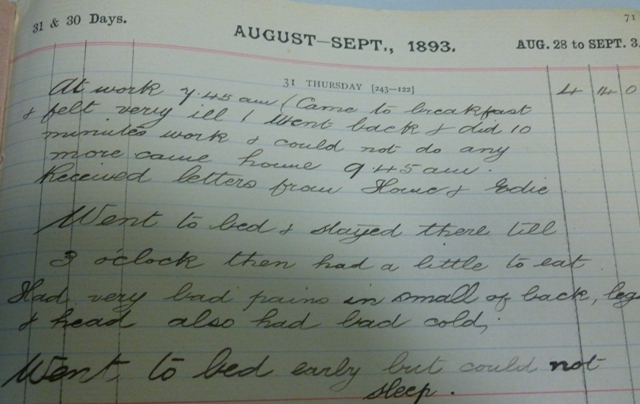 31 & 30 Days.
AUGUST—SEPT., 1893.
AUG. 28 to SEPT. 3.
71
31 THURSDAY [243—122]
At work 7.45 am (Came to breakfast
& felt very ill I went back & did 10
minutes work & could not do any
more came home 9 45 am.
Received letters from Howe & Edie
4 14 0
Went to bed & stayed there till
3 o'clock then had a little to eat
Had very bad pains in small of back, leg
& head also had bad cold,
Went to bed early but could not
sleep.